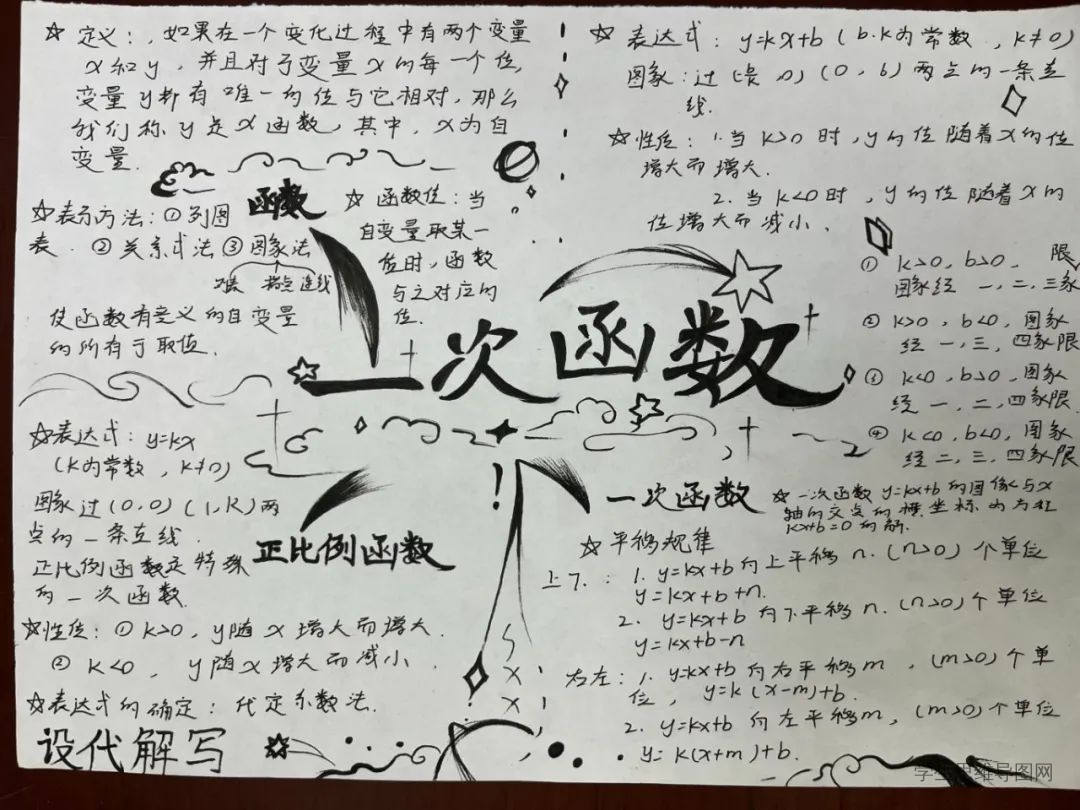 ☆ 定义:,如果在一个变化过程中有两个变量
x和y,并且对于变量x的每一个值,
变量y都有唯一的值与它相对,那么
我们称y是x函数,其中,x为自
变量.
函数
☆表示方法:①列图
表.②关系式法③图象法
描点 连线
使函数有意义的自变量
的所有于取值.
☆ 函数值:当
自变量取某一
值时,函数
与之对应的
值.
☆ 表达式:y=kx+b(b.k为常数,k≠0)
图象:过 (0,b)两点的一条直
线.
☆性质:1.当k>0时,y的值随着x的值
增大而增大.
2.当k<0时,y的值随着x的
值增大而减小.
① k>0,b>0, 限
图象经 一,二,三象
② k>0,b<0,图象
经 一,三,四象限
③ k<0,b>0,图象
经 一,二,四象限.
④ k<0,b<0,图象
经二,三,四象限
一次函数
☆表达式:y=kx
(k为常数,k≠0)
图象过(0,0)(1,k)两
点的一条直线.
正比例函数是特殊
的一次函数.
正比例函数
☆性质:①k>0,y随x增大而增大.
② k<0,y随x增大而减小.
☆表达式的确定:代定系数法.
设代解写
一次函数
☆ 一次函数y=kx+b的图像与x
轴的交点的横坐标为方程
kx+b=0的解.
☆平移规律
上下:1. y=kx+b向上平移n.(n>0)个单位
y=kx+b+n.
2. y=kx+b向下平移n.(n>0)个单位
y=kx+b-n
右左:1. y=kx+b向右平移m,(m>0)个单
位,y=k(x-m)+b.
2. y=kx+b向左平移m,(m>0)个单位
y=k(x+m)+b.
学生思维导图网